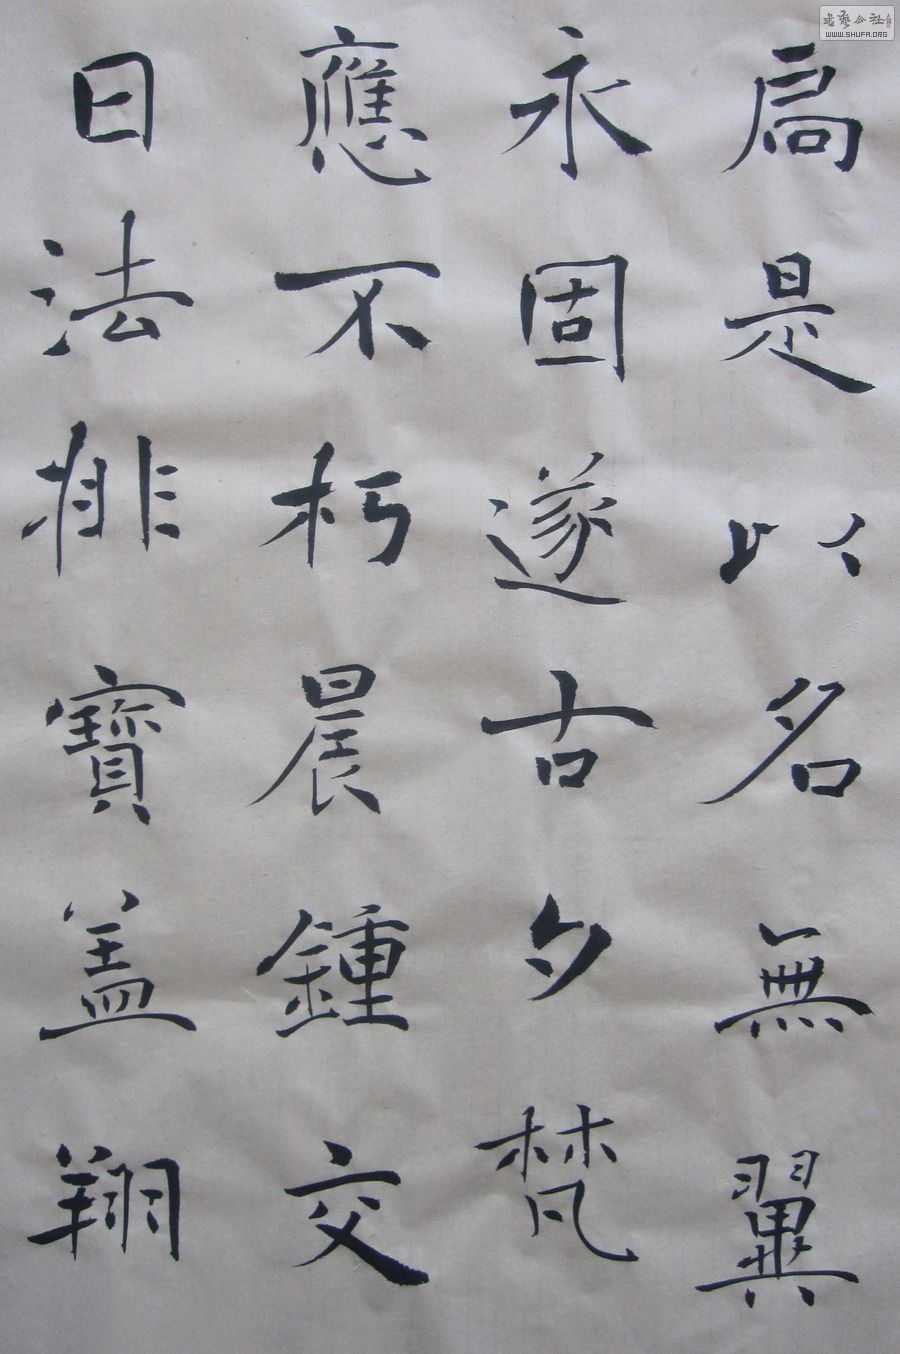 扃是以名無翼
永固遂古夕梵
應不朽晨鍾交
日法排寶盖翔
書藝公社
WWW.SHUFA.ORG